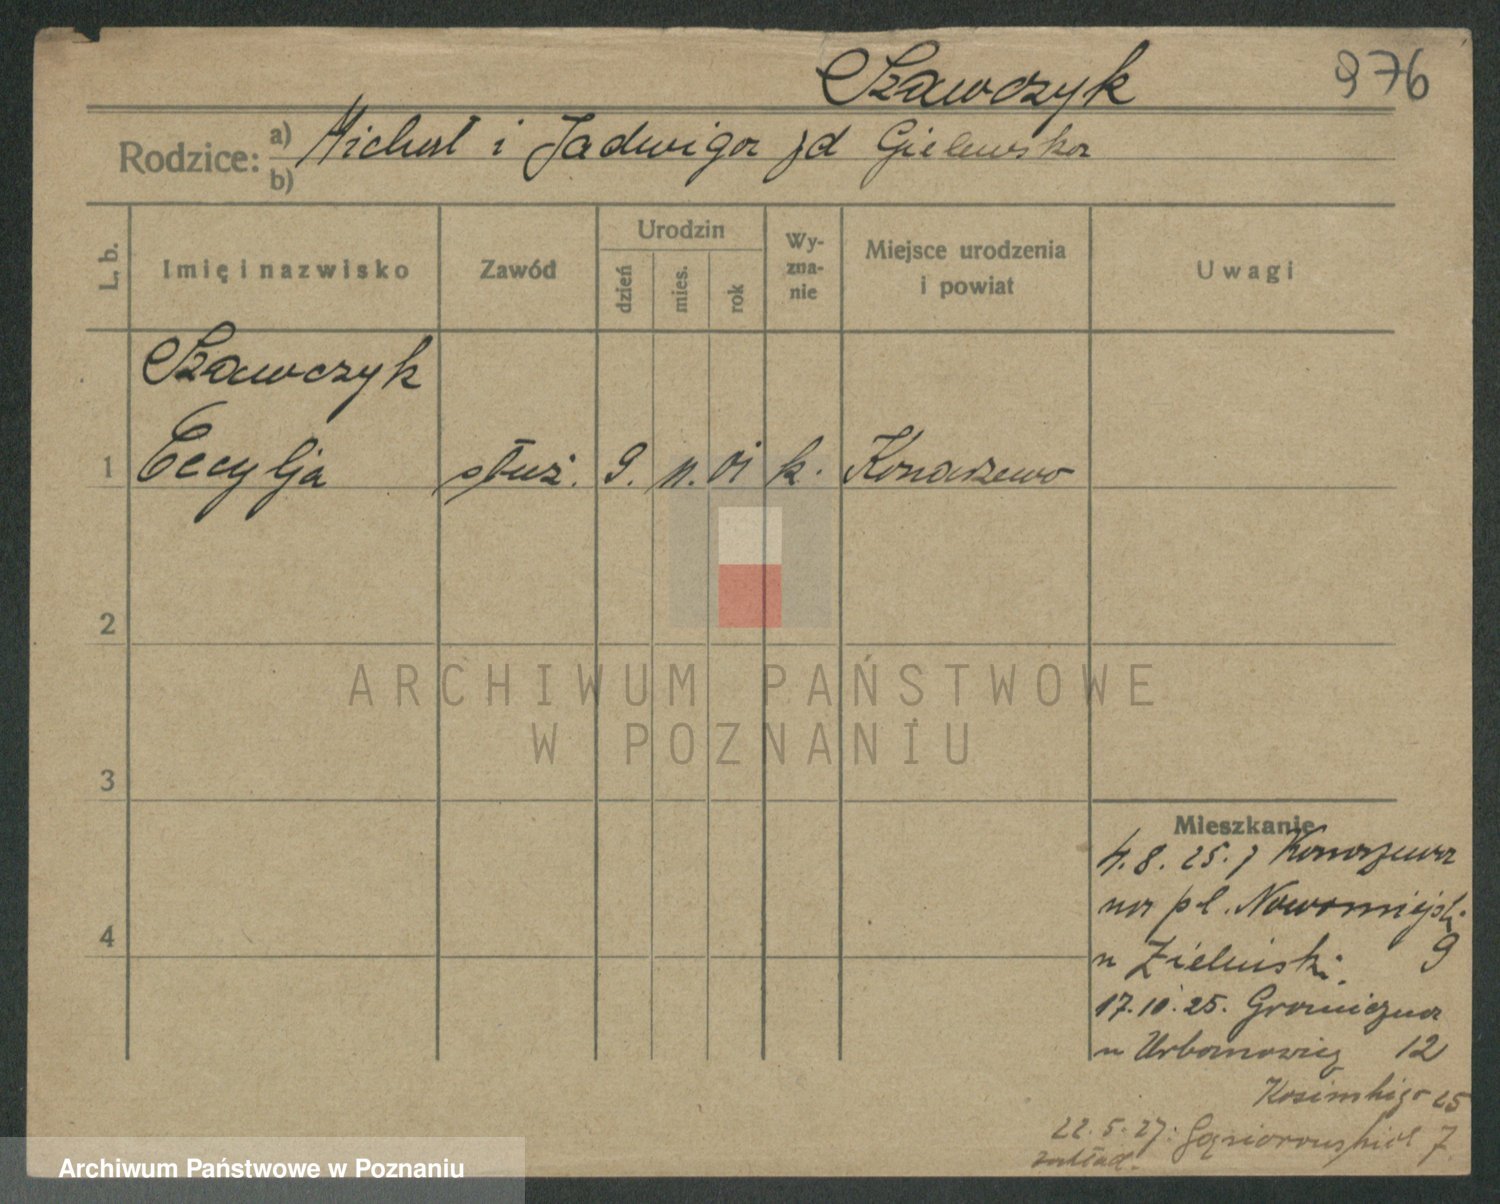 Szawczyk
976
Rodzice: a) Michał i Jadwiga zd Gielewska
b)
L. b.
Imię i nazwisko
Zawód
Urodzin
dzień
mies.
rok
Wy-
zna-
nie
Miejsce urodzenia
i powiat
Uwagi
Szawczyk
1 Cecylja służ. 9. 11. 01 k. Konarzewo
2
ARCHIWUM PAŃSTWOWE
W POZNANIU
3
Mieszkanie
4.8.25. z Konarzewa
na pl. Nowomiejsk.
4
u Zieliński 9
17.10.25. Graniczna
u Urbanowicz 12
Kosińskiego 25
22.5.27: Gąsiorowskich 7.
Archiwum Państwowe w Poznaniu